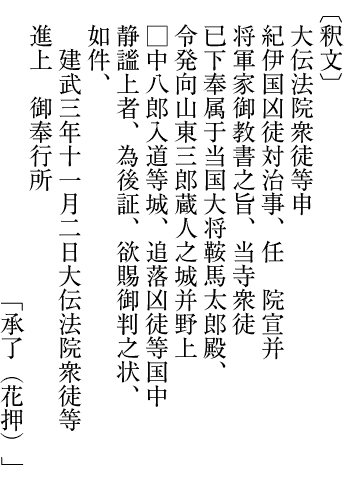 〔釈文〕
大伝法院衆徒等申
紀伊国凶徒対治事、任　院宣并
将軍家御教書之旨、当寺衆徒
已下奉属于当国大将鞍馬太郎殿、
令発向山東三郎蔵人之城并野上
□中八郎入道等城、追落凶徒等国中
静謐上者、為後証、欲賜御判之状、
如件、
建武三年十一月二日大伝法院衆徒等
進上　御奉行所
「承了（花押）」